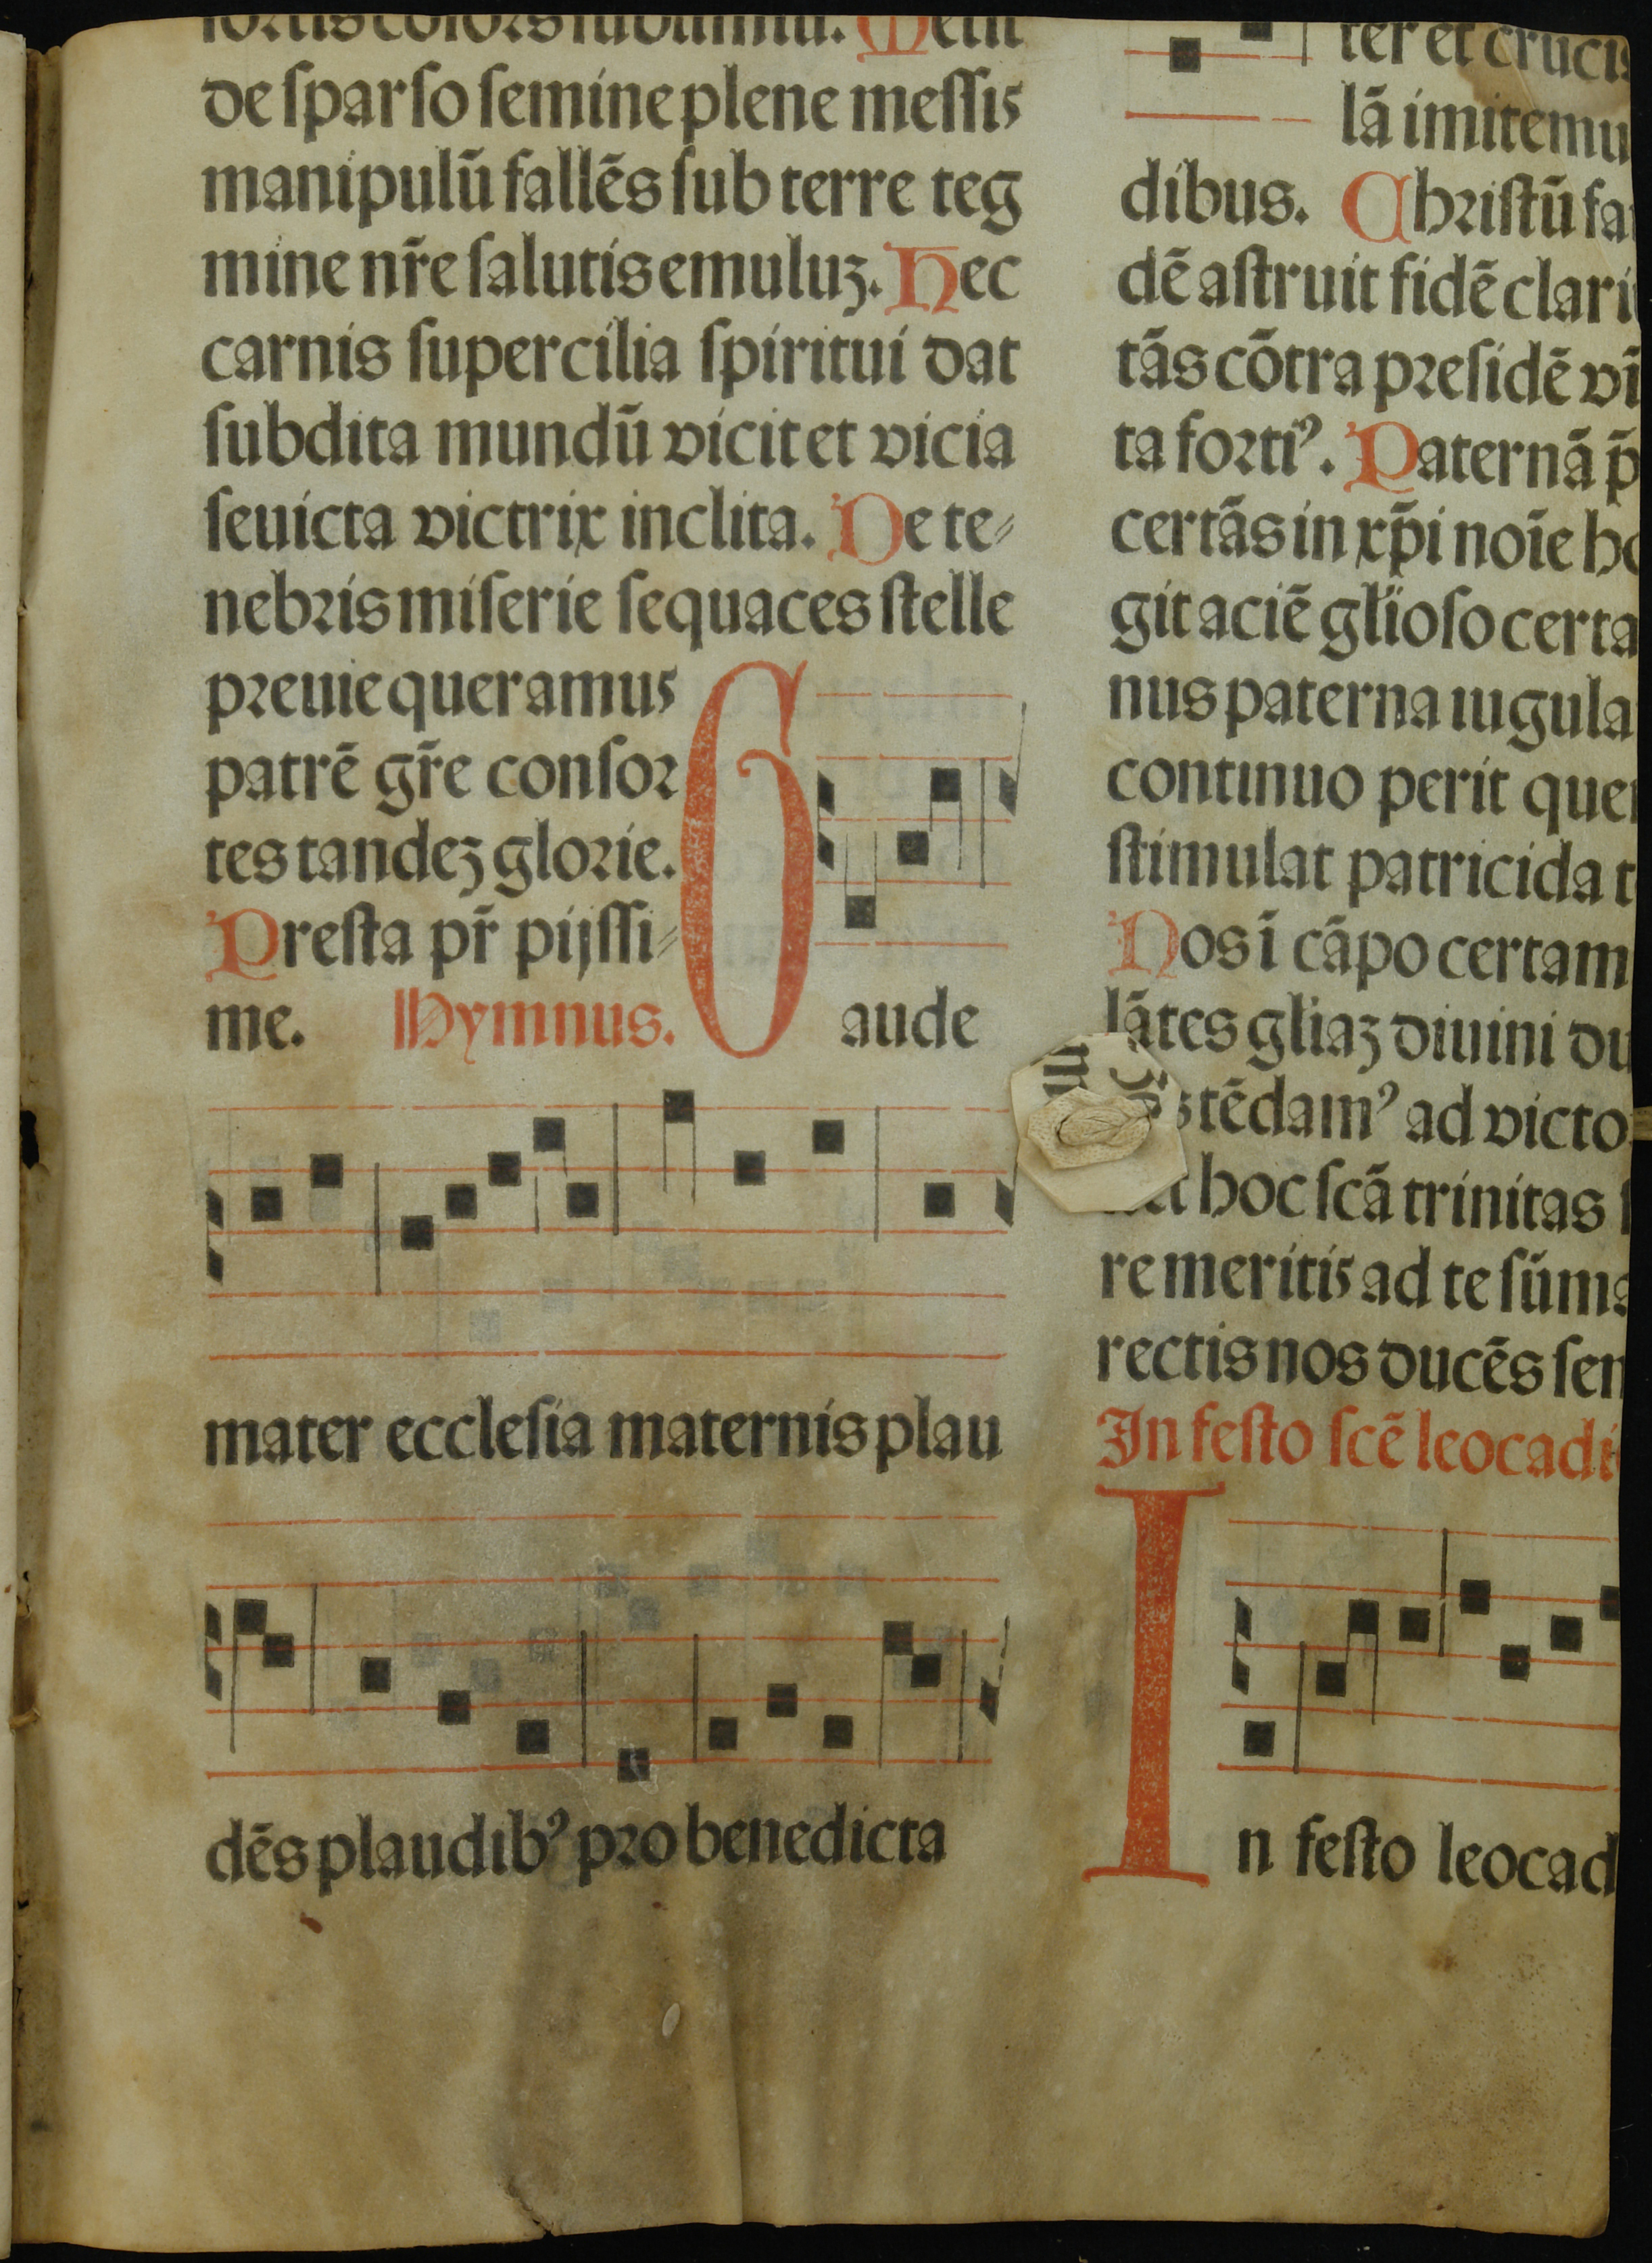 de sparso semine plene messis
manipulū fallēs sub terre teg
mine nr̄e salutis emuluꝫ. Hec
carnis supercilia spiritui dat
subdita mundū vicit et vicia
seuicta victrix inclita. De te⸗
nebris miserie sequaces stelle
preuie queramus
patrē gr̄e consor
tes tandeꝫ glorie.
Presta pr̄ pijssi⸗
me. Hymnus. Gaude
mater ecclesia maternis plau
dēs plaudibꝰ pro benedicta
ter et cruci
lā imitemu
dibus. Christū fa
dē astruit fidē clari
tās cōtra presidē vi
ta fortiꝰ. Paternā p̄
certās in xp̄i noīe ho
git aciē glīoso certa
nus paterna iugula
continuo perit que
stimulat patricida t
Nos ī cāpo certam
lātes gliaꝫ diuini du
tēdamꝰ ad victo
hoc scā trinitas
re meritis ad te sūm
rectis nos ducēs sen
In festo scē leocadi
In festo leocad